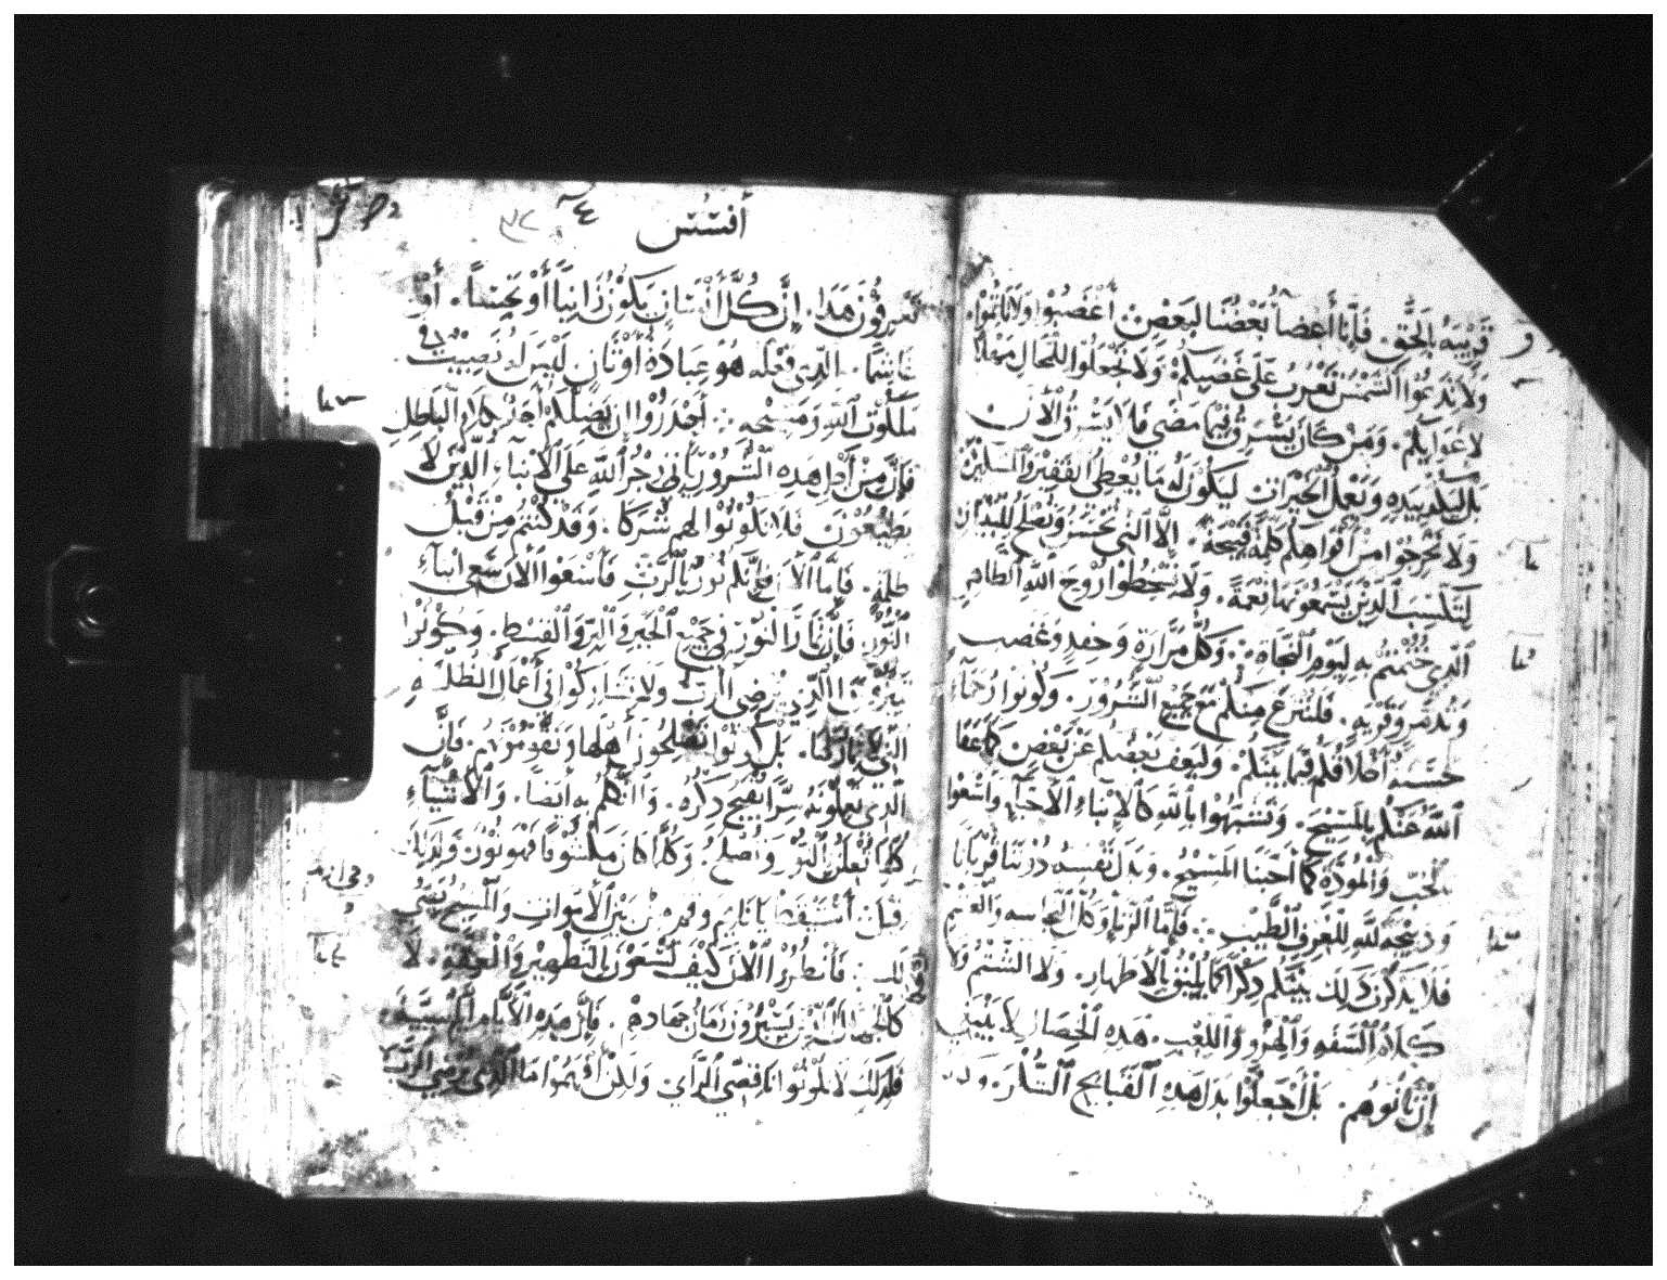 قريبه بالحق. فإنا أعضاء بعضنا لبعض اغضبوا ولا تاثموا.
ولا تدعوا الشمس تغرب على غضبكم. ولا تجعلوا للمحال مهلا
لاغوايكم. ومن كان يسرق فيما مضى فلا يسرق الأن
بل ليكد بيديه ويعمل الخيرات ليكون له ما يعطى الفقير والمسكين
ولا تخرجوا من أفواهكم كلمة قبيحة. إلا التي تحسن وتصلح للبنيان
لتكسب الذين يستمعونها نعمة. ولا تسخطوا روح الله الطاهر
الذي ختمتم به ليوم النجاة. وكل مرارة وحقد وغضب
وفرية. فلتنزع منكم مع جميع الشرور. وكونوا رحماء
حسنة أخلاقكم فيما بينكم. وليعف بعضكم عن بعض كما عفا
الله عنكم بالمسيح. وتشبهوا بالله كالابناء الأحباء واسعوا
بالحب والمودة كما أحبنا المسيح. وبذل نفسه دوننا قربانا
وذبيحة لله للعرف الطيب. فإما الزنا وكل النجاسه والغشم
فلا يذكرن ذلك بينكم ذكرا كما يليق بالأطهار. ولا الشتم ولا
كلام السفه والهزو واللعب. هذه الخصال لا ينبغي
بل أجعلوا بدل هذه القبايح الشكر.
أفسس
تعرفون هذا. إن كل أنسان يكون زانيا أو نجسا. أو
غاشما. الذي فعله هو عبادة أوثان ليس له نصيب في
ملكوت الله ومسيحه. أحذروا ان يضلكم أحد بكلام الباطل
فإن من أجل هذه الشرور ياتي رجز الله على الابناء الذين لا
يطيعون فلا تكونوا لهم شركا. وقد كنتم من قبل
ظلمة. فاما الأن فإنكم نور بالرب فأسعوا الأن سعي أبناء
النور. فإن ثمار النور في جميع الخير والبر والقسط. وكونوا
الذي يرضي الرب ولا تشاركوا في أعمال الظلمة
التي لا ثمار لها. بل كونوا تصلحون أهلها. فإن
الذي يعملونه سرا يقبح ذكره. أيضا. والأشياء
كلها تعلن بالنور. وكلما كان مكشوفا فهو نور ولذلك
قيل أستيقظ يا نايم وقم من بين الأموات والمسيح يضي
لك. فأنظروا الأن كيف تسعون بالتطهير والعفة. لا
كالجهال الذين. فإن هذه الأيام
فلذلك لا تكونوا ناقصي الرأي ولكن أفهموا ما الذي يرضي الرب